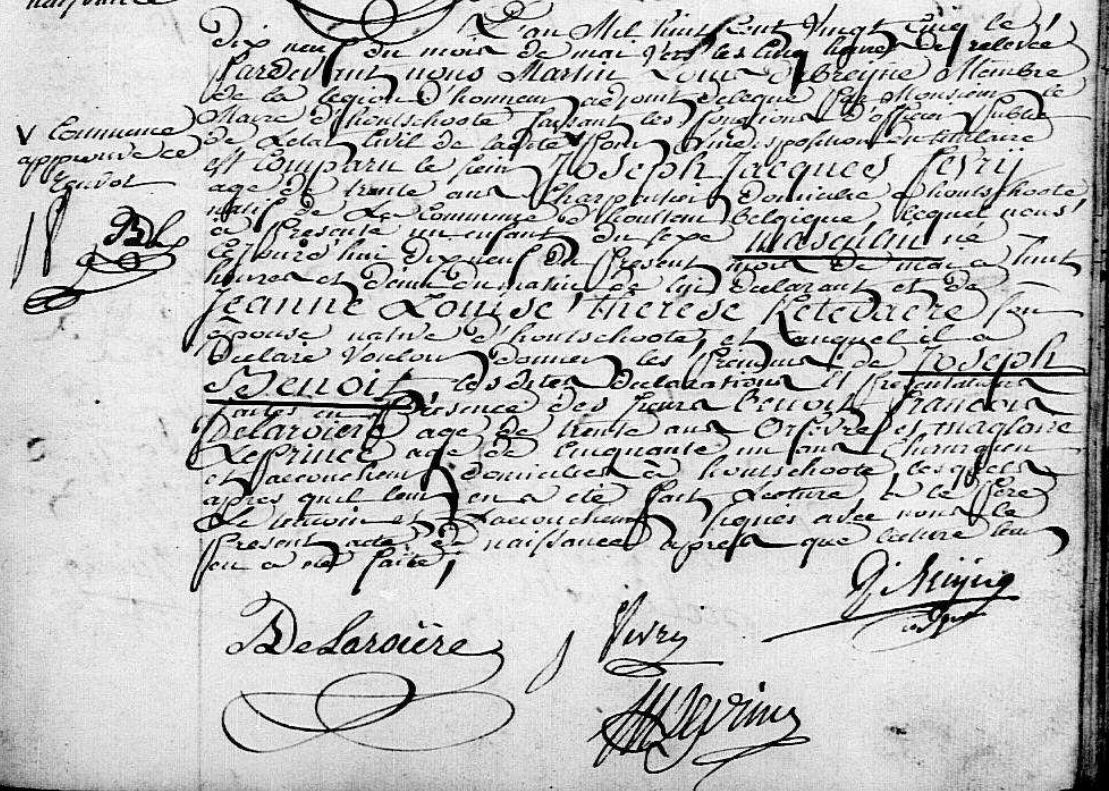 naissance
L'an Mil huit cent Vingt cinq le
dix neuf du mois de mai vers les cinq heures de relevée
Pardevant nous Martin Louis Debreyne Membre
de la légion d'honneur adjoint délégué par Monsieur le
Maire d'hontschoote faisant les fonctions d'officier Public
de L'etat Civil de ladite pour l'indisposition du titulaire
V Commune
approuvé ce
renvoi
est comparu le sieur Joseph Jacques Fevrij
agé de trente ans Charpentier domicilié a hontschoote
natif de La Commune d' Belgique lequel nous
a présenté un enfant du sexe masculin né
cejourd'hui dixneuf du présent mois de mai a huit
heures et demie du matin de lui déclarant et de
Jeanne Louise Thérèse Ketelaere son
épouse native d'hontschoote, et auquel il a
déclaré Vouloir donner les prénoms de Joseph
Benoit lesdites déclarations et présentations
faites en Présence des sieurs Benoit François
Delaroiere agé de trente ans Orfevre et magloire
Leprince agé de Cinquante un ans Chirurgien
et accoucheur domiciliés a hontschoote lesquels
apres qu'il leur en a été fait Lecture, le Père
Le témoin et L'accoucheur signés avec nous le
présent acte de naissance après que lecture leur
en a été faite,
BDeLaroière
Fevrij
Leprince